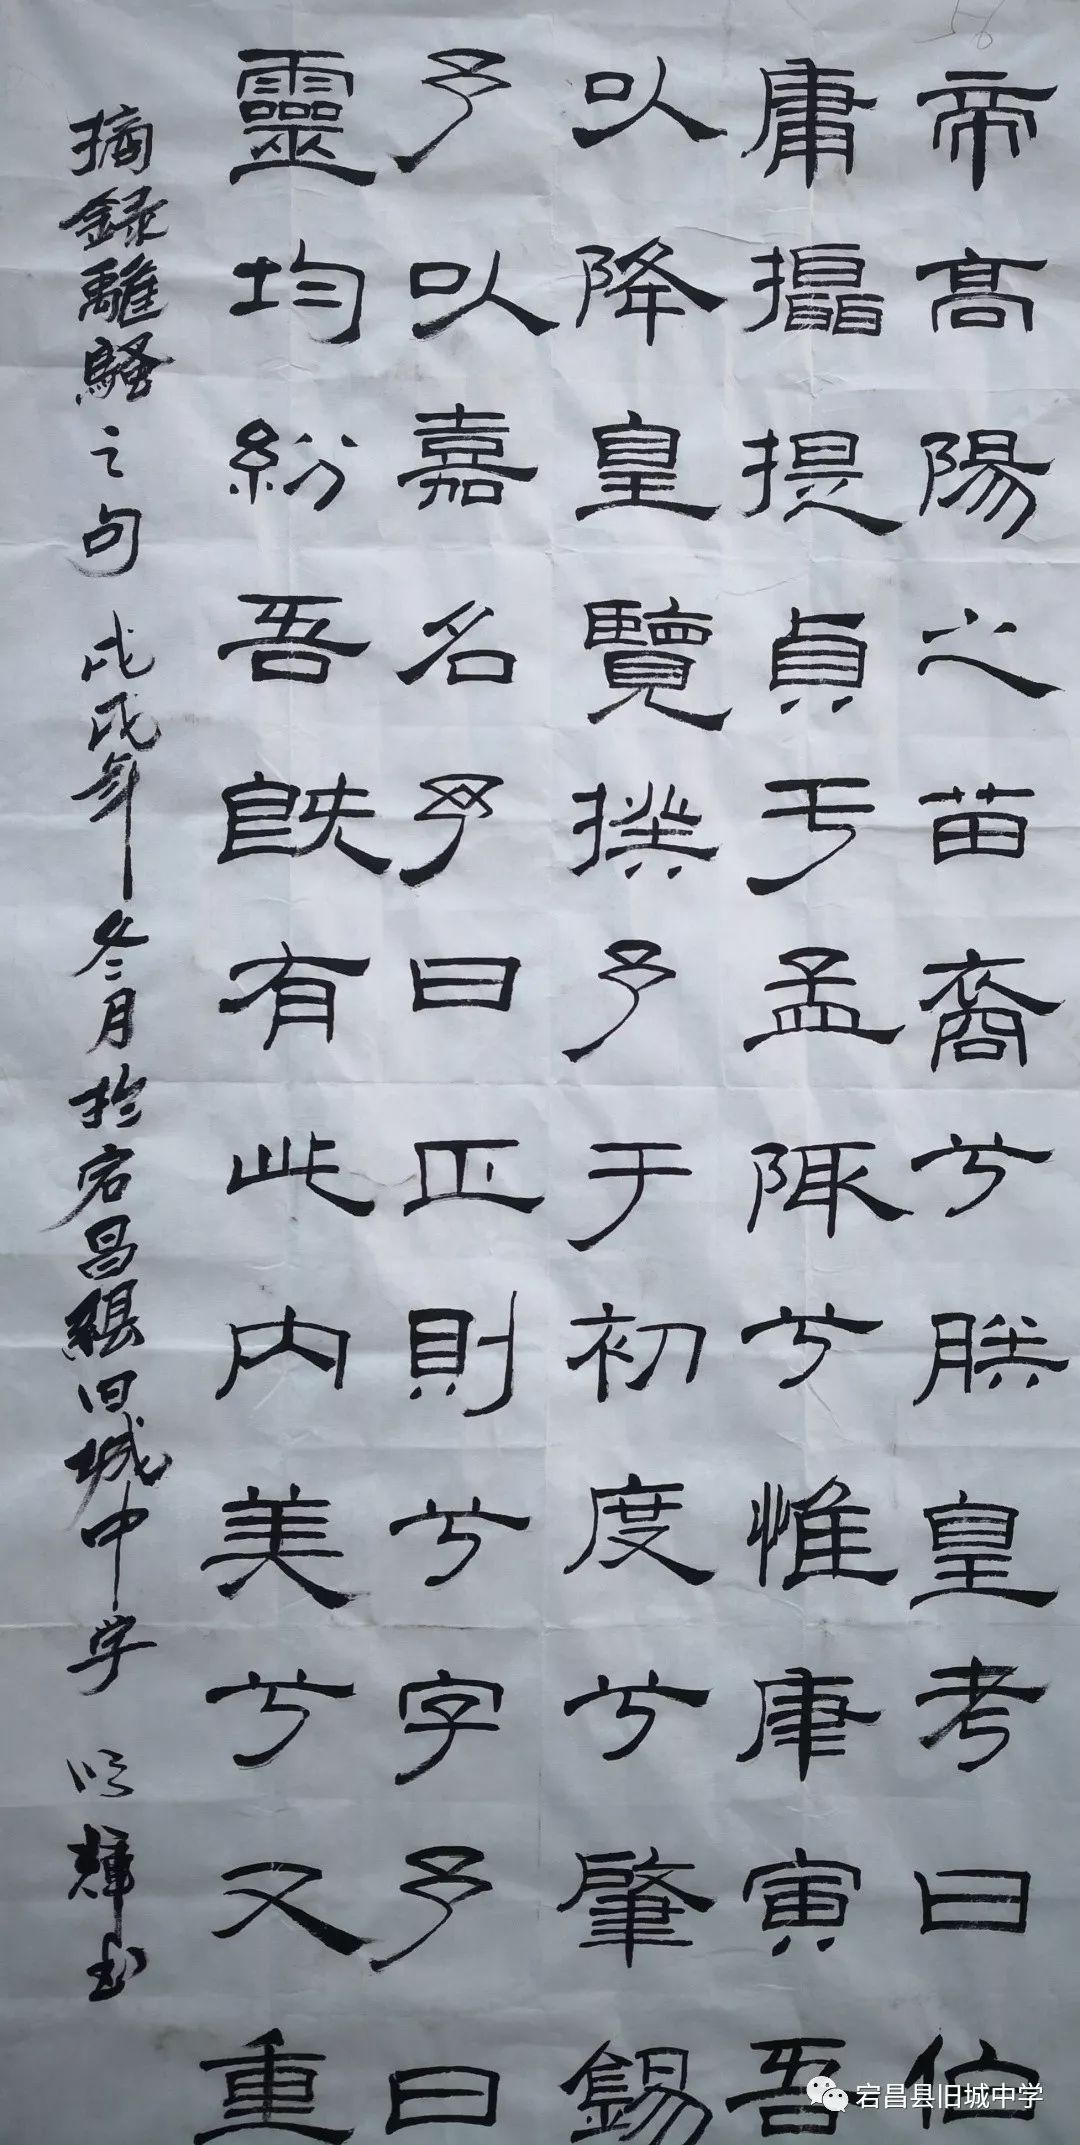 帝高陽之苗裔兮朕皇考曰伯
庸攝提貞于孟陬兮惟庚寅吾
以降皇覽揆予于初度兮肇錫
予以嘉名予曰正則兮字予曰
靈均紛吾既有此内美兮又重
摘録離騷之句 戊戌年冬月於宕昌縣旧城中学 輝书
宕昌县旧城中学
56